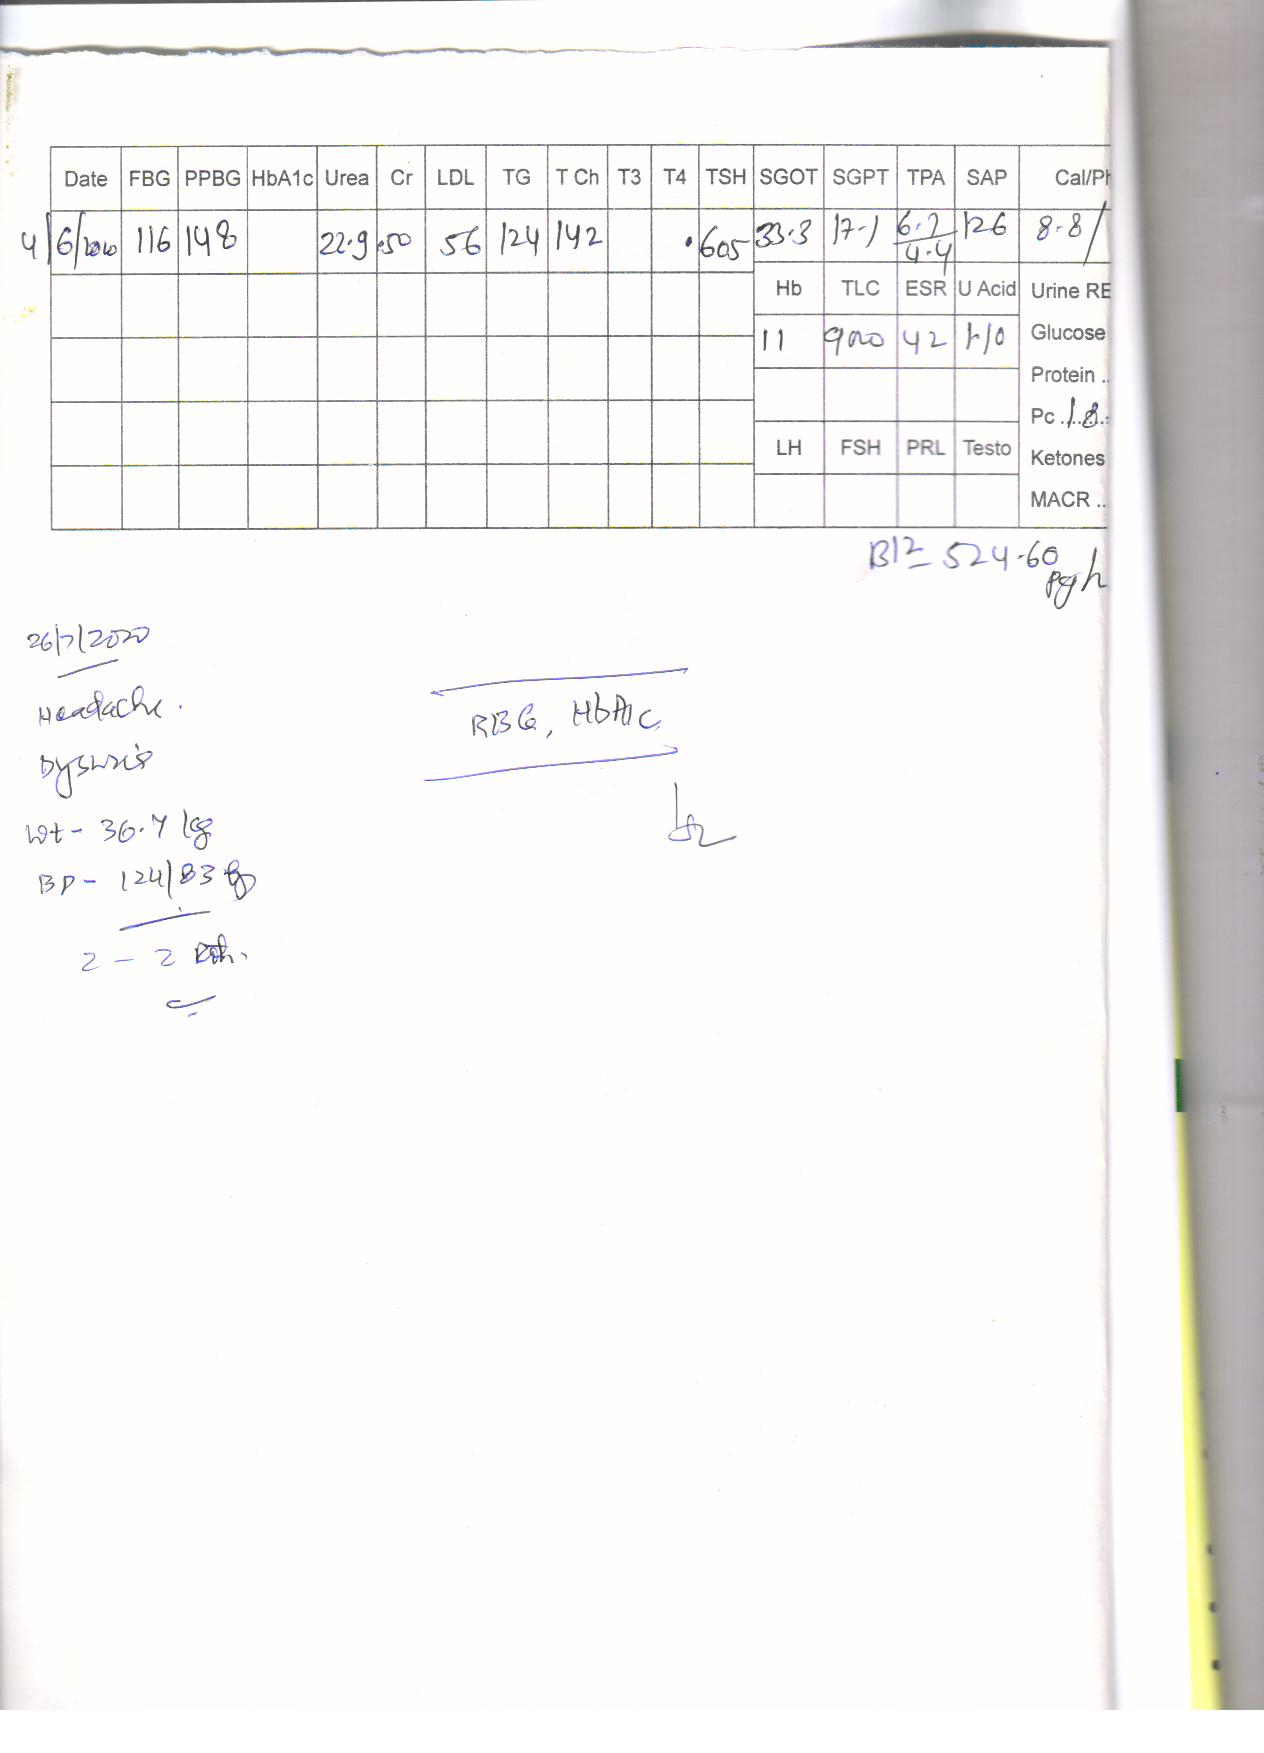 Date FBG PPBG HbA1c Urea Cr LDL TG T Ch T3 T4 TSH SGOT SGPT TPA SAP Cal/Ph
4/6/2020 116 148 22.9 .50 56 124 142 .605 33.3 17.1 6.7/4.4 126 8.8/
Hb TLC ESR U Acid Urine RE
11 900 42 Glucose
Protein ..
Pc .1.8..
LH FSH PRL Testo Ketones
MACR ..
B12 524.60
26/7/2020
Headache.
Dysuria
RBG, HbA1c
Wt - 36.7 kg
BP - 124/83
2 - 2